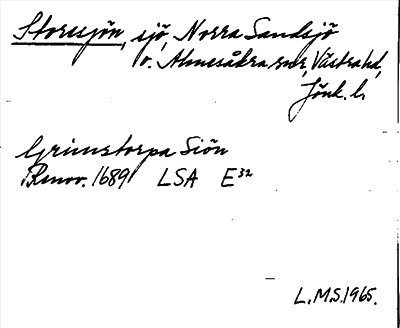 Storesjön, sjö, Norra Sandsjö
o. Almesåkra snr, Västra hd,
Jönk. l.
Grimstorpa Siön
Renov. 1689 LSA E³²
L.M.S. 1965.